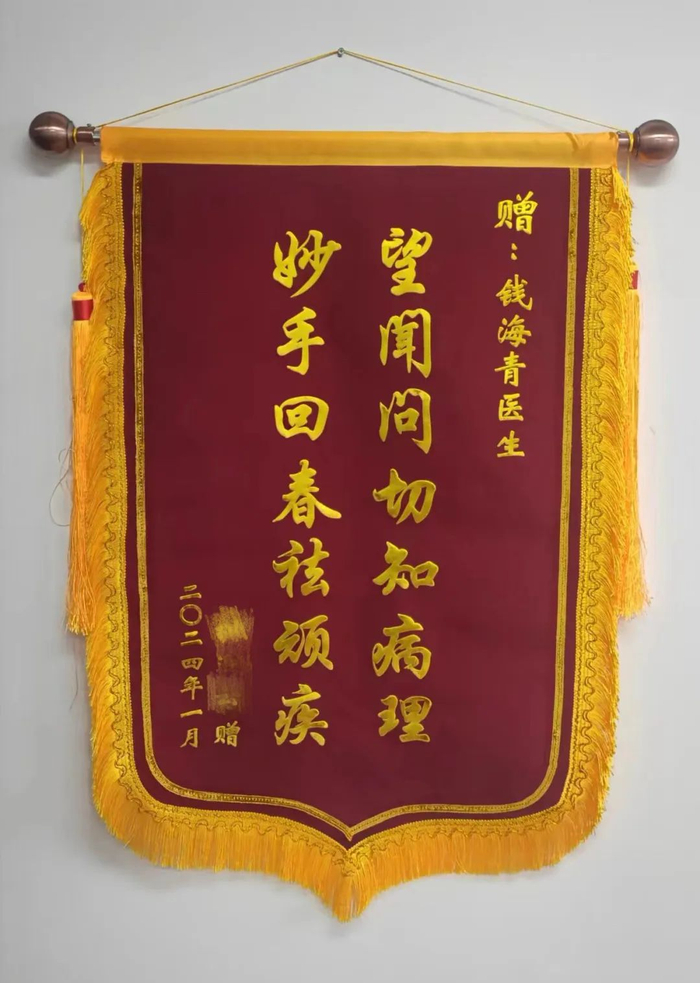 赠：钱海青医生
望闻问切知病理
妙手回春祛顽疾
赠
二〇二四年一月